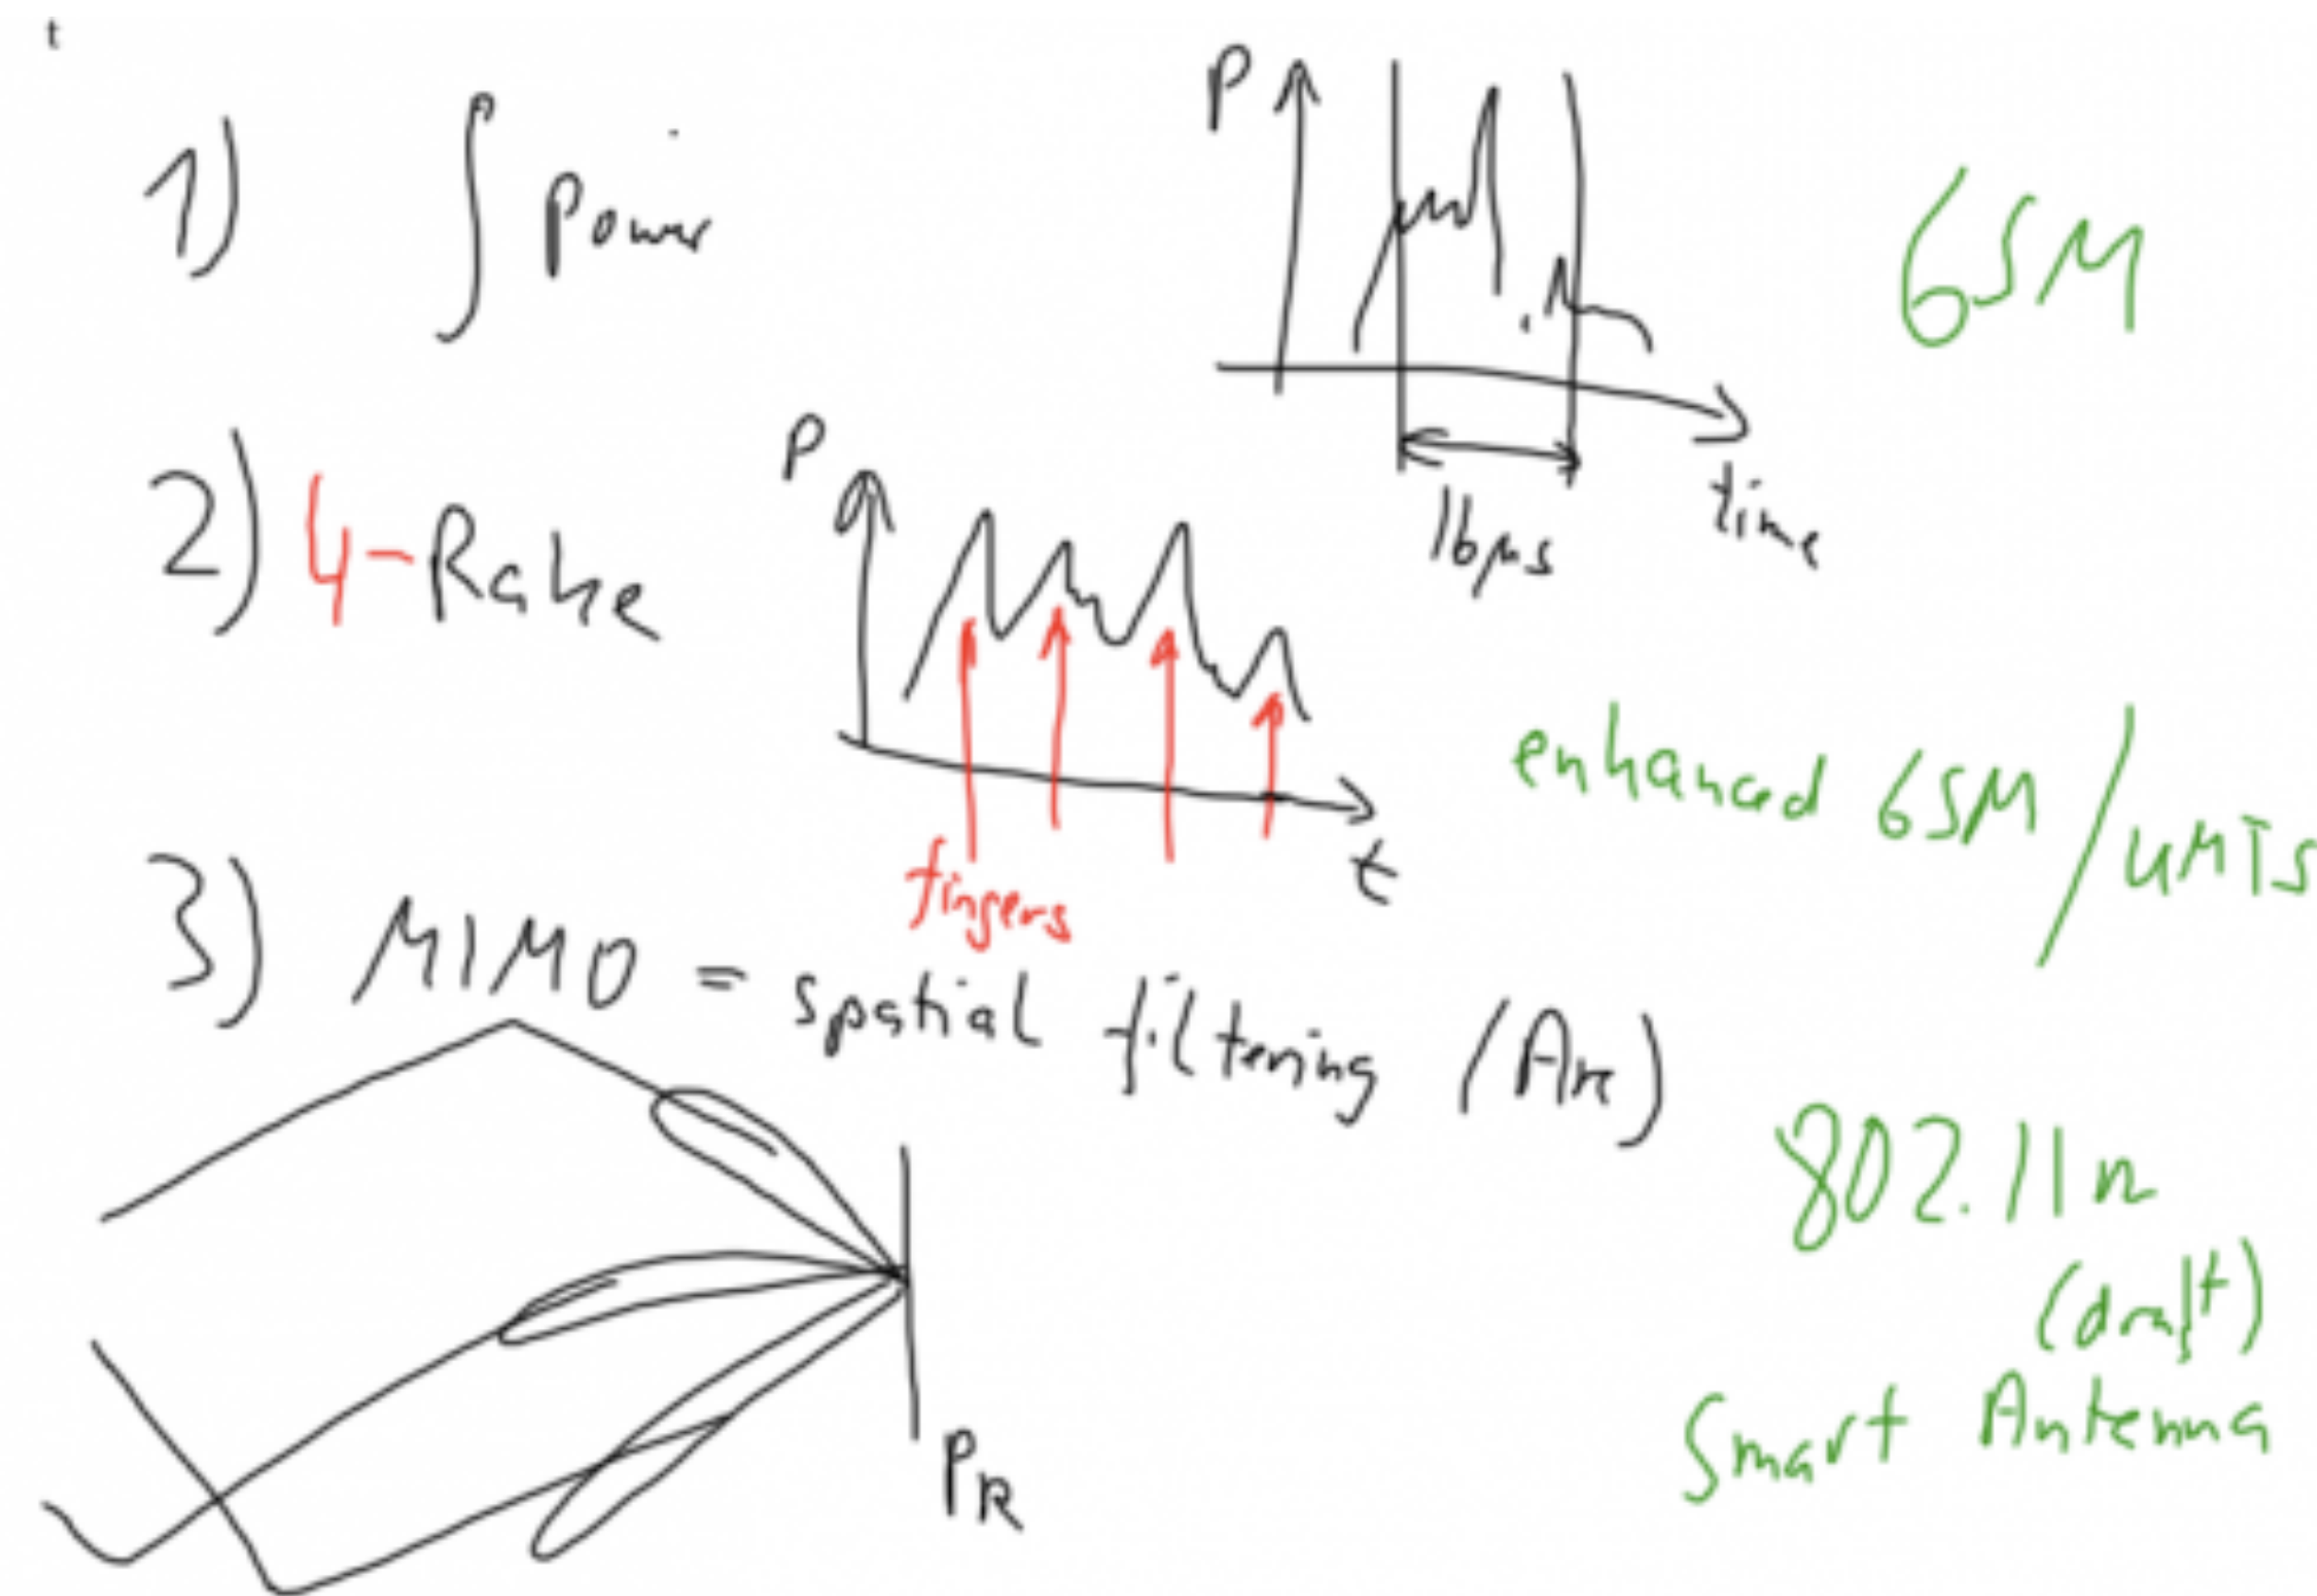 t
1) ∫ Power
P
time
16μs
GSM
2) 4-Rake
P
t
fingers
enhanced GSM/UMTS
3) MIMO = spatial filtering
802.11n
(draft)
Smart Antenna
PR